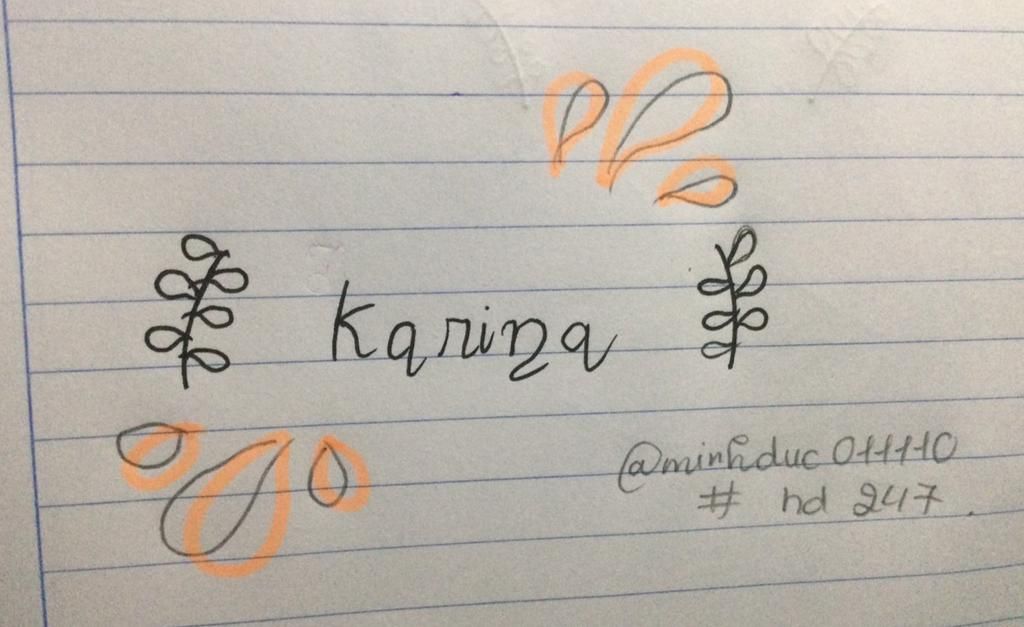 Karina
@minhduc011110
# hd 247